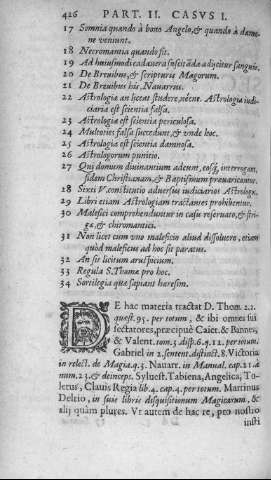 426 PART. II. CASVS I.
17 Somnia quando à bono Angelo, & quando à dæmone veniunt.
18 Necromantia quando sit.
19 Ad huiusmodi cadauera suscitāda adijcitur sanguis.
20 De Breuibus, & scripturis Magorum.
21 De Breuibus his, Nauarrus.
22 Astrologia an liceat studere, necne. Astrologia iudiciaria est scientia falsa.
23 Astrologia est scientia periculosa.
24 Multoties falsa succedunt, & vnde hoc.
25 Astrologia est scientia damnosa.
26 Astrologorum punitio.
27 Qui domum diuinantium adeunt, eosq́; interrogant, fidem Christianam, & Baptismum præuaricantur.
28 Sixti V. constitutio aduersus iudiciarios Astrologos.
29 Libri etiam Astrologiam tractantes prohibentur.
30 Malefici comprehenduntur in casu reseruato, & striges, & chiromantici.
31 Non licet cum vno maleficio aliud dissoluere, etiam quod maleficus ad hoc sit paratus.
32 An sit licitum aruspicium.
33 Regula S. Thomæ pro hoc.
34 Sortilegia quæ sapiant hæresim.
DE hac materia tractat D. Thom. 2.2.
quæst. 95. per totum, & ibi omnes sui
sectatores, præcipuè Caiet. & Bannes,
& Valent. tom. 3. disp. 6. q. 12. per totum.
Gabriel in 2. sentent. distinct. 8. Victoria
in relect. de Magia. q. 3. Nauarr. in Manual. cap. 11. à
num. 23. & deinceps. Syluest. Tabiena, Angelica, Toletus,
Clauis Regia lib. 4. cap. 4. per totum. Martinus
Delrio, in suis libris disquisitionum Magicarum, &
alij quàm plures. Vt autem de hac re, pro nostro
insti